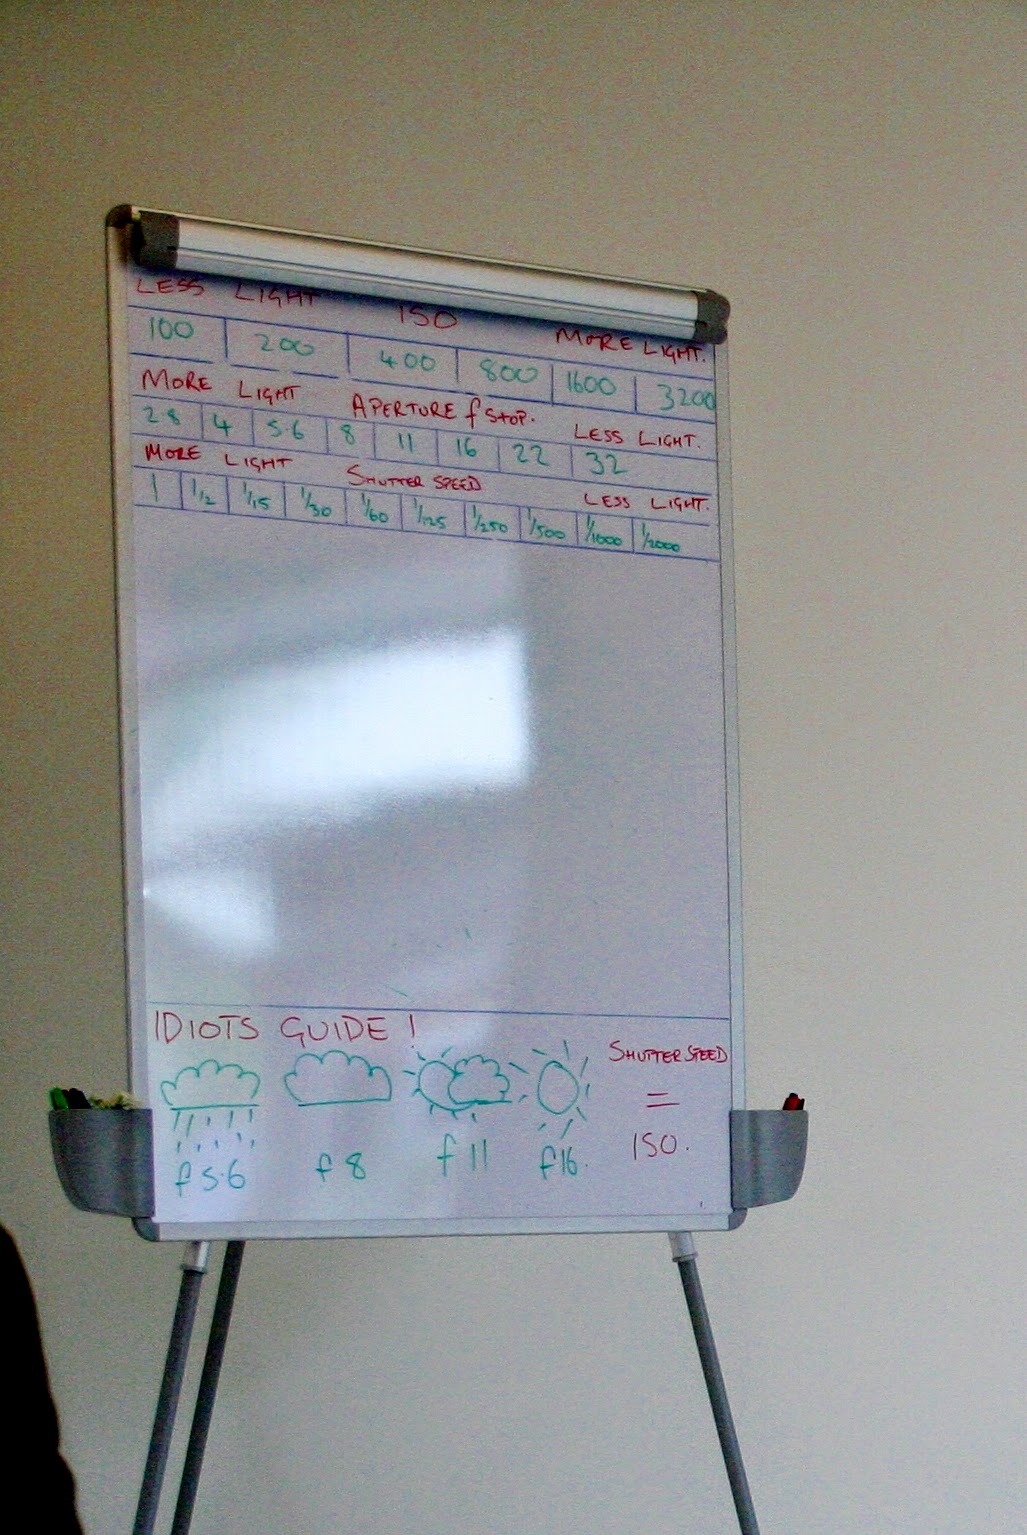 LESS LIGHT ISO MORE LIGHT.
100 200 400 800 1600 3200
MORE LIGHT APERTURE f STOP. LESS LIGHT.
2.8 4 5.6 8 11 16 22 32
MORE LIGHT SHUTTER SPEED LESS LIGHT.
1 1/2 1/15 1/30 1/60 1/125 1/250 1/500 1/1000 1/2000
IDIOTS GUIDE !
SHUTTER SPEED
=
ISO.
f 5.6 f 8 f 11 f16.